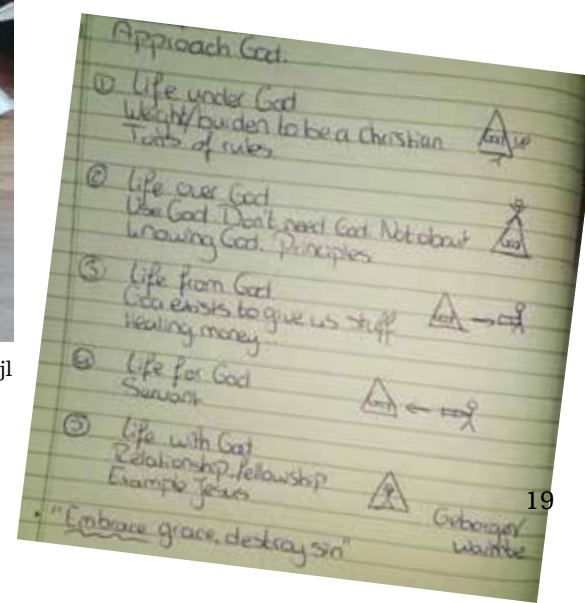 Approach God.
① Life under God
Weight/burden to be a Christian
Tons of rules
② Life over God
Use God. Don't need God. Not about
knowing God. Principles
③ Life from God
God exists to give us stuff
Healing, money...
④ Life for God
Servant
⑤ Life with God
Relationship, fellowship
Example Jesus
"Embrace grace, destroy sin"
jl
19